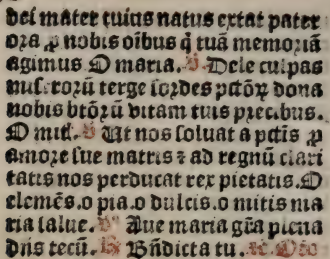 dei mater cuius natus extat pater
ora ꝓ nobis oibꝰ q̄ tuā memoriā
agimus O maria. ℣ Dele culpas
miserorū terge sordes pctōꝝ dona
nobis btōrū vitam tuis precibus.
O mitꝭ. ℣ Ut nos soluat a pctīs ꝓ
amore sue matris ⁊ ad regnū clari
tatis nos perducat rex pietatis. O
clemēs. o pia. o dulcis. o mitis ma
ria salue. ℣ Aue maria gr̄a plena
dn̄s tecū. ℟ Bn̄dicta tu. ⁊c. Orō